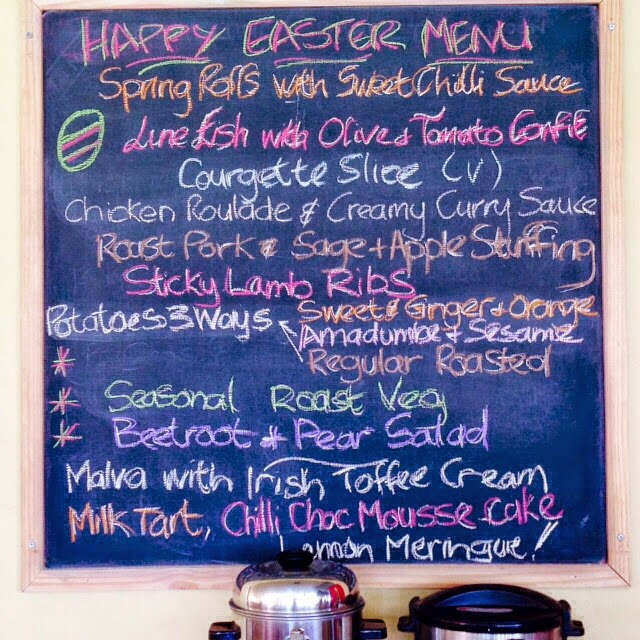 HAPPY EASTER MENU
Spring Rolls with Sweet Chilli Sauce
Line fish with Olive & Tomato Confit
Courgette Slice (V)
Chicken Roulade & Creamy Curry Sauce
Roast Pork & Sage + Apple Stuffing
Sticky Lamb Ribs
Potatoes 3 Ways
Sweet & Ginger & Orange
Amadumbe & Sesame
Regular Roasted
Seasonal Roast Veg
Beetroot + Pear Salad
Malva with Irish Toffee Cream
Milk Tart, Chilli Choc Mousse Cake
Lemon Meringue!